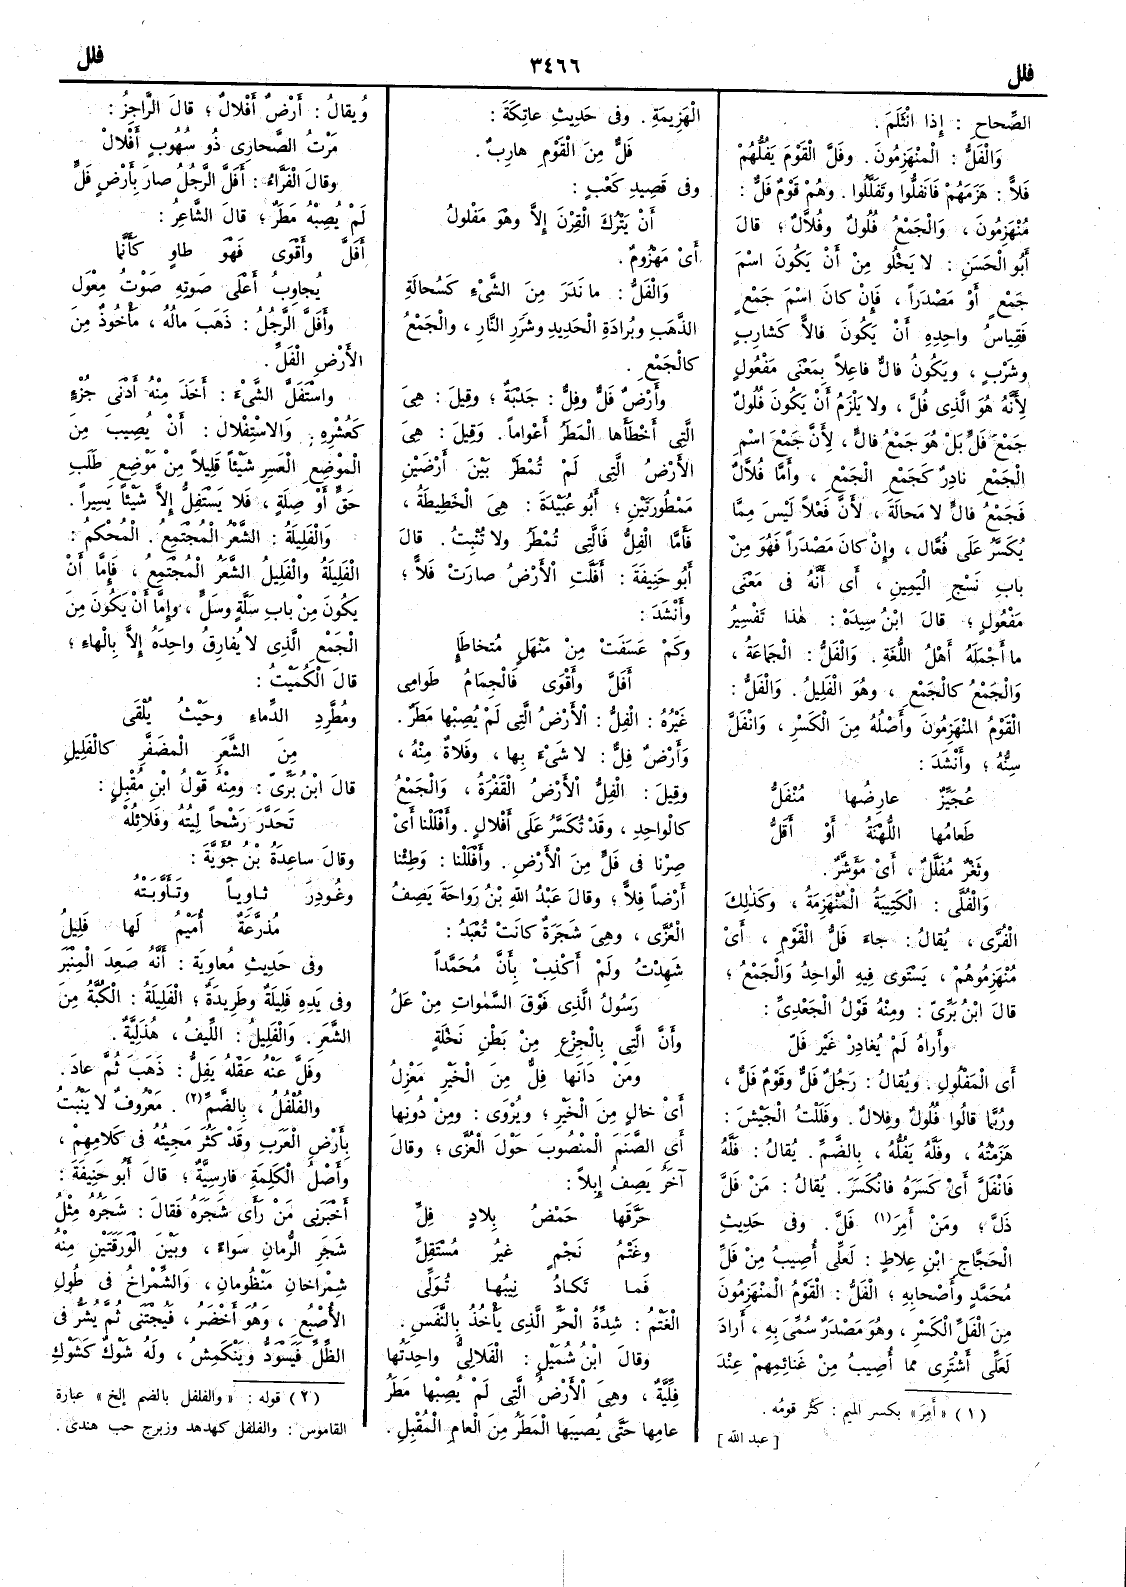 فلل
٣٤٦٦
فلل
الصِّحاحِ : إِذا انْثَلَمَ .
وَالْفَلُّ : الْمُنْهَزِمُونَ . وفَلَّ الْقَوْمَ يَفُلُّهُمْ
فَلاًّ : هَزَمَهُمْ فَانْفَلُّوا وتَفَلَّلُوا . وهُمْ قَوْمٌ فَلٌّ :
مُنْهَزِمُونَ ، وَالْجَمْعُ فُلُولٌ وفُلاَّلٌ ؛ قالَ
أَبُو الْحَسَنِ : لا يَخْلُو مِنْ أَنْ يَكُونَ اسْمَ
جَمْعٍ أَوْ مَصْدَراً ، فَإِنْ كانَ اسْمَ جَمْعٍ
فَقِياسُ واحِدِهِ أَنْ يَكُونَ فالاًّ كَشارِبٍ
وشَرْبٍ ، ويَكُونُ فالٌّ فاعِلاً بِمَعْنَى مَفْعُولٍ
لِأَنَّهُ هُوَ الَّذِى فُلَّ ، ولا يَلْزَمُ أَنْ يَكُونَ فُلُولٌ
جَمْعَ فَلٍّ بَلْ هُوَ جَمْعُ فالٍّ ، لِأَنَّ جَمْعَ اسْمِ
الْجَمْعِ نادِرٌ كَجَمْعِ الْجَمْعِ ، وَأَمَّا فُلاَّلٌ
فَجَمْعُ فالٍّ لا مَحالَةَ ، لِأَنَّ فَعْلاً لَيْسَ مِمَّا
يُكَسَّرُ عَلَى فُعَّالٍ ، وإِنْ كانَ مَصْدَراً فَهُوَ مِنْ
بابِ نَسْجِ الْيَمِينِ ، أَى أَنَّهُ فِى مَعْنَى
مَفْعُولٍ ؛ قالَ ابْنُ سِيدَهْ : هٰذا تَفْسِيرُ
ما أَجْمَلَهُ أَهْلُ اللُّغَةِ . وَالْفَلُّ : الْجَمَاعَةُ ،
وَالْجَمْعُ كالْجَمْعِ ، وهُوَ الْفَلِيلُ . وَالْفَلُّ :
الْقَوْمُ الْمُنْهَزِمُونَ وأَصْلُهُ مِنَ الْكَسْرِ ، وَانْفَلَّ
سِنُّهُ ؛ وأَنْشَدَ :
عُجَيِّزٌ عارِضُها مُنْفَلُّ
طَعامُها اللُّهْنَةُ أَوْ أَقَلُّ
وثَغْرٌ مُفَلَّلٌ ، أَىْ مُؤَشَّرٌ .
وَالْفُلَّى : الْكَتِيبَةُ الْمُنْهَزِمَةُ ، وكَذٰلِكَ
الْفُرَّى ، يُقالُ : جاءَ فَلُّ الْقَوْمِ ، أَىْ
مُنْهَزِمُوهُمْ ، يَسْتَوِى فِيهِ الْواحِدُ وَالْجَمْعُ ؛
قالَ ابْنُ بَرِّىّ : ومِنْهُ قَوْلُ الْجَعْدِىِّ :
وأَراهُ لَمْ يُغادِرْ غَيْرَ فَلّ
أَىِ الْمَفْلُولِ . ويُقالُ : رَجُلٌ فَلٌّ وقَوْمٌ فَلٌّ ،
ورُبَّما قالُوا فُلُولٌ وفِلالٌ . وفَلَلْتُ الْجَيْشَ :
هَزَمْتُهُ ، وفَلَّهُ يَفُلُّهُ ، بِالضَّمِّ . يُقالُ : فَلَّهُ
فَانْفَلَّ أَىْ كَسَرَهُ فانْكَسَرَ . يُقالُ : مَنْ فَلَّ
ذَلَّ ؛ ومَنْ أَمِرَ (١) فَلَّ . وفِى حَدِيثِ
الْحَجَّاجِ ابْنِ عِلاطٍ : لَعَلِّى أُصِيبُ مِنْ فَلِّ
مُحَمَّدٍ وأَصْحابِهِ ؛ الْفَلُّ : الْقَوْمُ الْمُنْهَزِمُونَ
مِنَ الْفَلِّ الْكَسْرِ ، وهُوَ مَصْدَرٌ سُمِّىَ بِهِ ، أَرادَ
لَعَلِّى أَشْتَرِى مما أُصِيبُ مِنْ غَنائِمِهِمْ عِنْدَ
(١) « أَمِرَ » بكسر الميم : كَثُر قومُه .
[ عبد الله ]
الْهَزِيمَةِ . وفِى حَدِيثِ عاتِكَةَ :
فَلٌّ مِنَ الْقَوْمِ هارِبُ .
وفِى قَصِيدِ كَعْبٍ :
أَنْ يَتْرُكَ الْقِرْنَ إِلاَّ وهْوَ مَفْلُولُ
أَىْ مَهْزُومٌ .
وَالْفَلُّ : ما نَدَرَ مِنَ الشَّىْءِ كَسُحالَةِ
الذَّهَبِ وبُرادَةِ الْحَدِيدِ وشَرَرِ النَّارِ ، والْجَمْعُ
كالْجَمْعِ .
وأَرْضٌ فَلٌّ وفِلٌّ : جَدْبَةٌ ؛ وقِيلَ : هِىَ
الَّتِى أَخْطَأَها الْمَطَرُ أَعْواماً . وَقِيلَ : هِىَ
الأَرْضُ الَّتِى لَمْ تُمْطَرْ بَيْنَ أَرْضَيْنِ
مَمْطُورَتَيْنِ ؛ أَبُو عُبَيْدَةَ : هِىَ الْخَطِيطَةُ ،
فَأَمَّا الْفِلُّ فَالَّتِى تُمْطَرُ ولا تُنْبِتُ . قالَ
أَبُو حَنِيفَةَ : أَفَلَّتِ الْأَرْضُ صارَتْ فَلاًّ ؛
وأَنْشَدَ :
وكَمْ عَسَفَتْ مِنْ مَنْهَلٍ مُتخاطَإٍ
أَفَلَّ وأَقْوَى فَالْجِمَامُ طَوامِى
غَيْرُهُ : الْفِلُّ : الْأَرْضُ الَّتِى لَمْ يُصِبْها مَطَرٌ .
وَأَرْضٌ فِلٌّ : لا شَىْءَ بِها ، وفَلاةٌ مِنْهُ ،
وقِيلَ : الْفِلُّ الْأَرْضُ الْقَفْرَةُ ، وَالْجَمْعُ
كالْواحِدِ ، وقَدْ تُكَسَّرُ عَلَى أَفْلالٍ . وأَفْلَلْنا أَىْ
صِرْنا فِى فَلٍّ مِنَ الْأَرْضِ . وأَفْلَلْنا : وَطِئْنا
أَرْضاً فِلاًّ ؛ وقالَ عَبْدُ اللهِ بْنُ رَواحَةَ يَصِفُ
الْعُزَّى ، وهِىَ شَجَرَةٌ كانَتْ تُعْبَدُ :
شَهِدْتُ ولَمْ أَكْذِبْ بِأَنَّ مُحَمَّداً
رَسُولُ الَّذِى فَوْقَ السَّمٰواتِ مِنْ عَلُ
وأَنَّ الَّتِى بِالْجِزْعِ مِنْ بَطْنِ نَخْلَةٍ
ومَنْ دَانَها فِلٌّ مِنَ الْخَيْرِ مَعْزِلُ
أَىْ خالٍ مِنَ الْخَيْرِ ؛ ويُرْوَى : ومِنْ دُونِها
أَىِ الصَّنَمَ الْمَنْصُوبَ حَوْلَ الْعُزَّى ؛ وقالَ
آخَرُ يَصِفُ إِبِلاً :
حَرَّقَها حَمْضُ بِلادٍ فِلِّ
وغَتْمُ نَجْمٍ غَيرُ مُسْتَقِلِّ
فَما تَكادُ نِيبُها تُوَلِّى
الْغَتْمُ : شِدَّةُ الْحَرِّ الَّذِى يَأْخُذُ بِالنَّفَسِ .
وقالَ ابْنُ شُمَيْلٍ : الْفَلالِىُّ واحِدَتُها
فِلِّيَّةٌ ، وهِىَ الْأَرْضُ الَّتِى لَمْ يُصِبْها مَطَرُ
عامِها حَتَّى يُصِيبَها الْمَطَرُ مِنَ الْعامِ الْمُقْبِلِ .
ويُقالُ : أَرْضٌ أَفْلالٌ ؛ قالَ الرَّاجِزُ :
مَرْتُ الصَّحارِى ذُو سُهُوبٍ أَفْلالْ
وقالَ الْفَرَّاءُ : أَفَلَّ الرَّجُلُ صارَ بِأَرْضٍ فَلٍّ
لَمْ يُصِبْهُ مَطَرٌ ؛ قالَ الشَّاعِرُ :
أَفَلَّ وأَقْوَى فَهْوَ طاوٍ كَأَنَّما
يُجاوِبُ أَعْلَى صَوتِهِ صَوْتُ مِعْوَلِ
وأَفَلَّ الرَّجُلُ : ذَهَبَ مالُهُ ، مَأْخُوذٌ مِنَ
الأَرْضِ الْفَلِّ .
واسْتَفَلَّ الشَّىْءَ : أَخَذَ مِنْهُ أَدْنَى جُزْءٍ
كَعُشْرِهِ . وَالاسْتِفْلال : أَنْ يُصِيبَ مِنَ
الْمَوْضِعِ الْعَسِرِ شَيْئاً قَلِيلاً مِنْ مَوْضِعِ طَلَبِ
حَقٍّ أَوْ صِلَةٍ ، فَلا يَسْتَفِلُّ إِلاَّ شَيْئاً يَسِيراً .
وَالْفَلِيلَةُ : الشَّعْرُ الْمُجْتَمِعُ . الْمُحْكَمُ :
الْفَلِيلَةُ والْفَلِيلُ الشَّعَرُ الْمُجْتَمِعُ ، فَإِمَّا أَنْ
يَكُونَ مِنْ بابِ سَلَّةٍ وسَلٍّ ، وإِمَّا أَنْ يَكُونَ مِنَ
الْجَمْعِ الَّذِى لا يُفارِقُ واحِدَهُ إِلاَّ بِالْهاءِ ؛
قالَ الْكُمَيْتُ :
ومُطَّرِدِ الدِّماءِ وحَيْثُ يُلْقَى
مِنَ الشَّعَرِ الْمُضَفَّرِ كالْفَلِيلِ
قالَ ابْنُ بَرِّىّ : ومِنْهُ قَوْلُ ابْنِ مُقْبِلٍ :
تَحَدَّرَ رَشْحاً لِيتُهُ وفَلائِلُهْ
وقالَ ساعِدَةُ بْنُ جُؤَيَّةَ :
وغُودِرَ ثاوِياً وتَأَوَّبَتْهُ
مُذَرَّعَةٌ أُمَيْمُ لَها فَلِيلُ
وفِى حَدِيثِ مُعاوِيَةَ : أَنَّهُ صَعِدَ الْمِنْبَرَ
وفِى يَدِهِ فَلِيلَةٌ وطَرِيدَةٌ ؛ الْفَلِيلَةُ : الْكُبَّةُ مِنَ
الشَّعَرِ . وَالْفَلِيلُ : اللِّيفُ ، هُذَلِيَّةٌ .
وفَلَّ عَنْهُ عَقْلُهُ يَفِلُّ : ذَهَبَ ثُمَّ عادَ .
والْفُلْفُلُ ، بِالضَّمِّ (٢) . مَعْرُوفٌ لا يَنْبُتُ
بِأَرْضِ الْعَرَبِ وقَدْ كَثُرَ مَجِيئُهُ فِى كَلامِهِمْ ،
وأَصْلُ الْكَلِمَةِ فارِسِيَّةٌ ؛ قالَ أَبُو حَنِيفَةَ :
أَخْبَرَنِى مَنْ رَأَى شَجَرَهُ فَقالَ : شَجَرُهُ مِثْلُ
شَجَرِ الرُّمانِ سَواءً ، وبَيْنَ الْوَرَقَتَيْنِ مِنْهُ
شِمْراخانِ مَنْظُومانِ ، والشِّمْراخُ فِى طُولِ
الأُصْبُعِ ، وهُوَ أَخْضَرُ ، فَيُجْتَنَى ثُمَّ يُشَرُّ فِى
الظِّلِّ فَيَسْوَدُّ ويَنْكَمِشُ ، ولَهُ شَوْكٌ كَشَوْكِ
(٢) قوله : « والفلفل بالضم إلخ » عبارة
القاموس : والفلفل كهدهد وزبرج حب هندى .